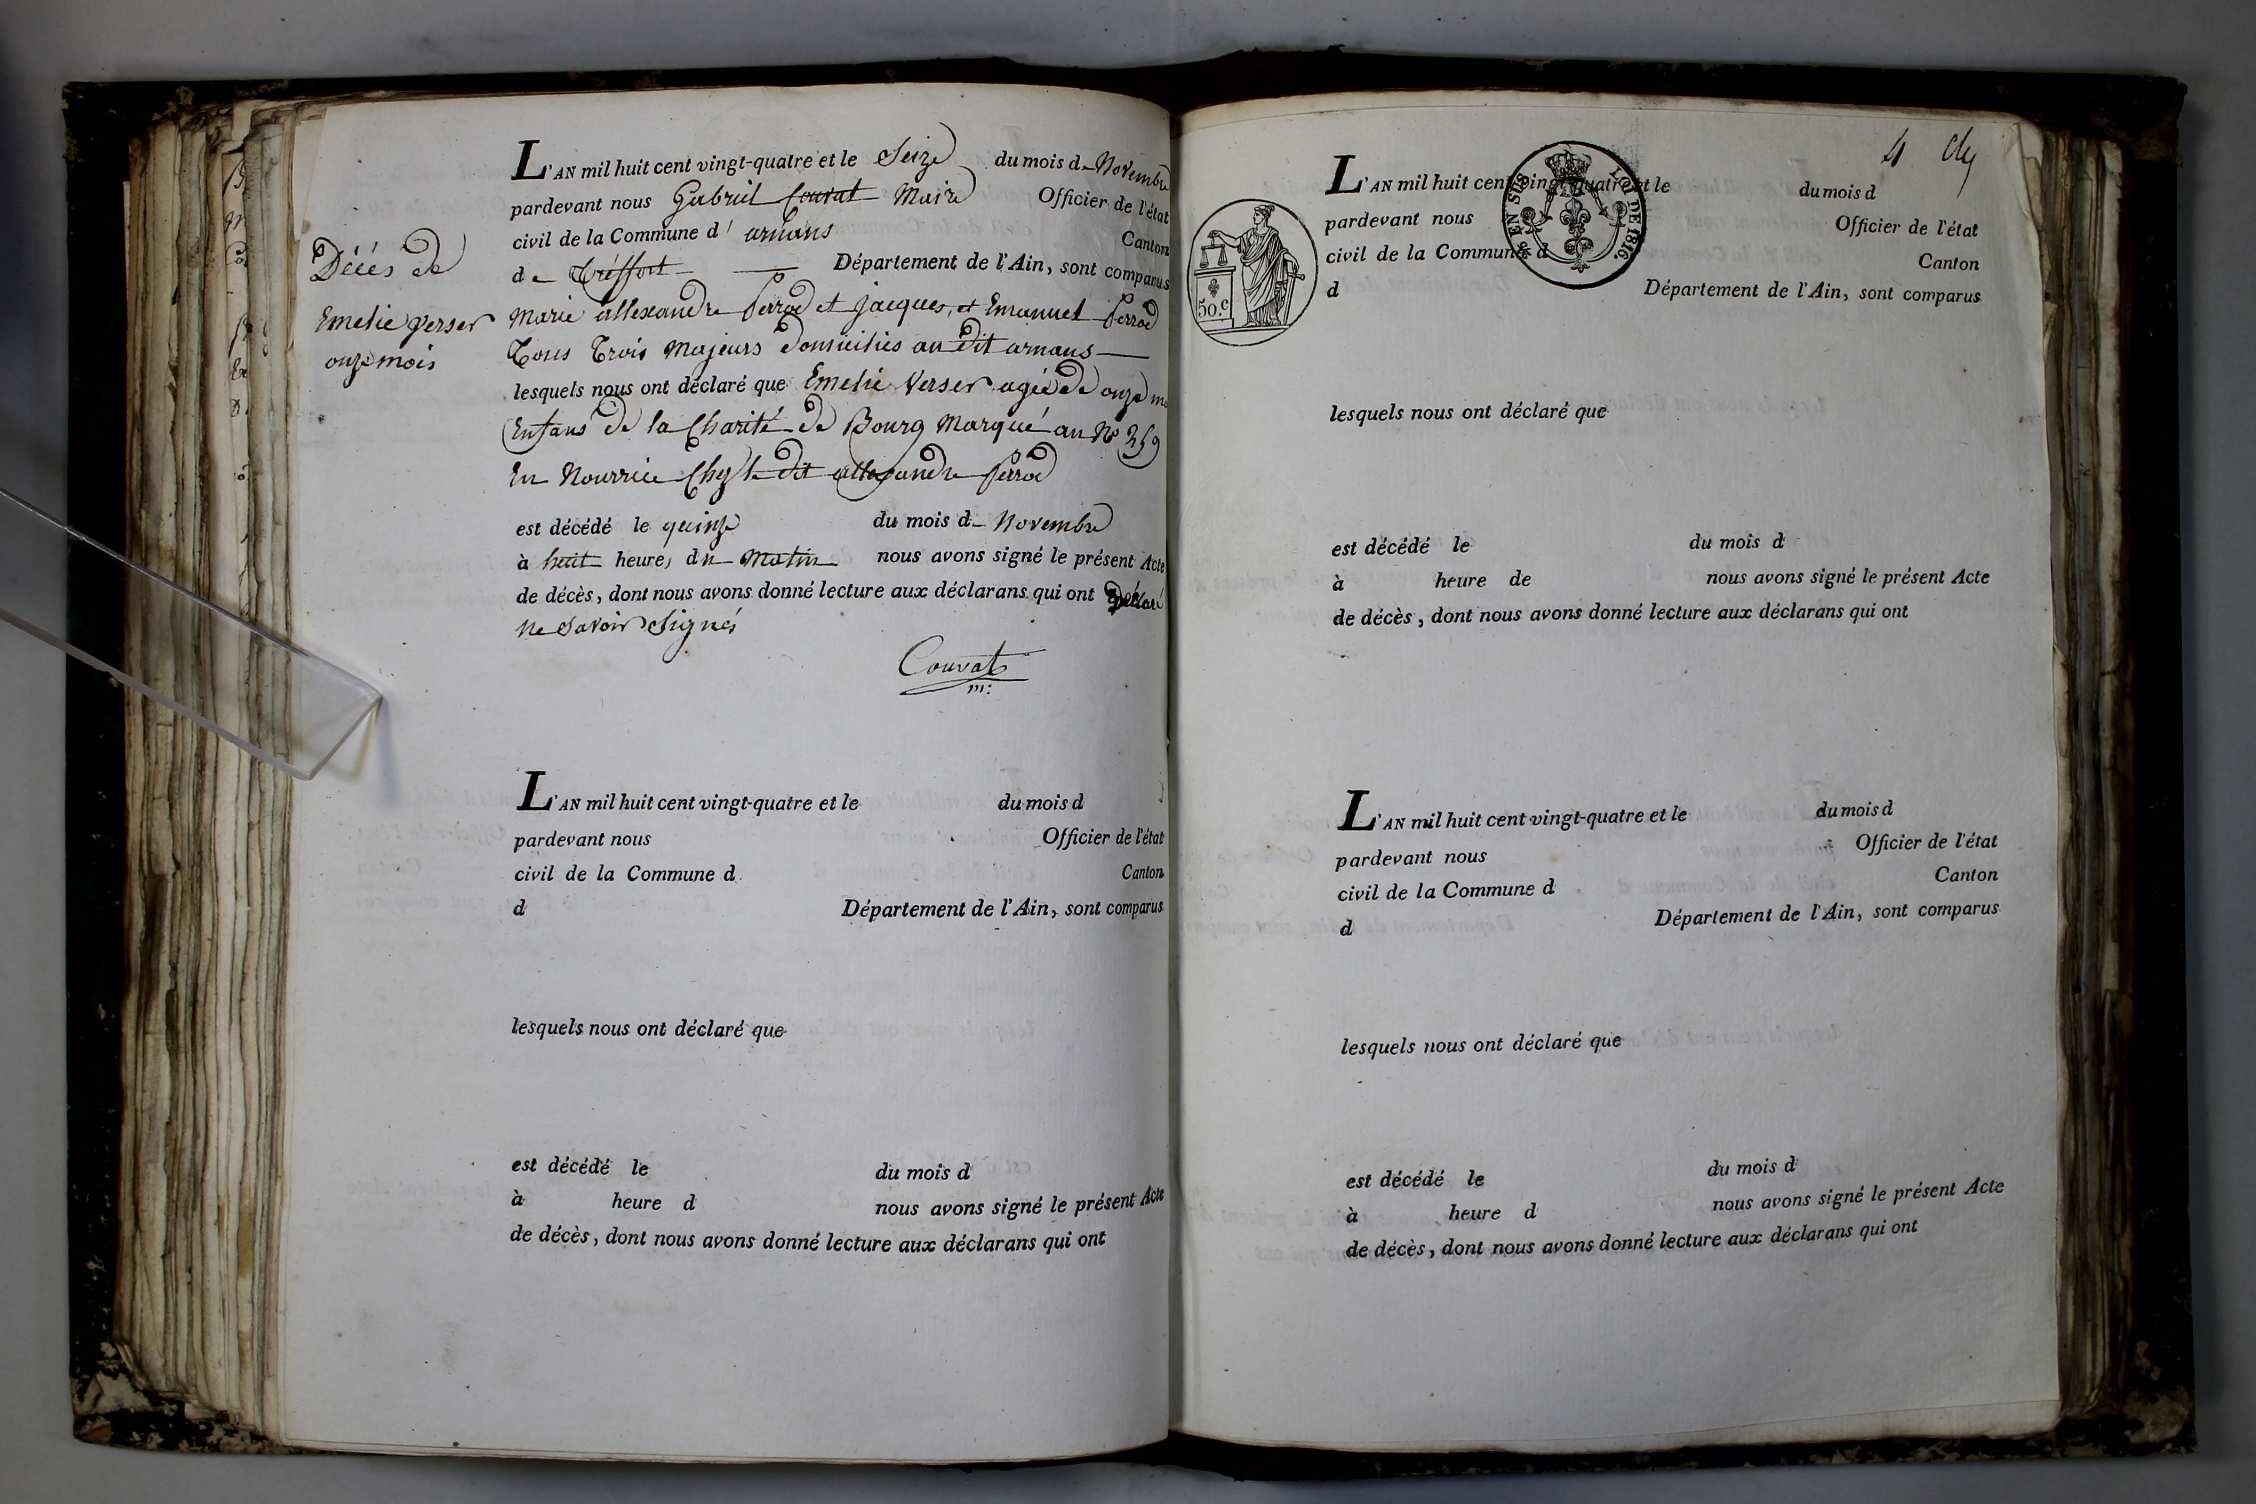 L'AN mil huit cent vingt-quatre et le Seize du mois de Novembre
pardevant nous Gabriel Couvat Maire Officier de l'état
civil de la Commune d' arnans Canton
de Tréffort Département de l'Ain, sont comparus
Marie allexandre Perrod et jacques, et Emanuel Perrod
Tous Trois Majeurs Domiciliés au dit arnans
lesquels nous ont déclaré que Emelie Verser agée de onze mo
Enfans de la Charité de Bourg Marqué au No 359
En Nourrice Chez le dit allexandre Perrod
est décédé le quinze du mois de Novembre
à huit heures du Matin nous avons signé le présent Acte
de décès, dont nous avons donné lecture aux déclarans qui ont Déclaré
Ne Savoir Signés
Couvat
m:
Décés de
Emelie Verser
onze mois
L'AN mil huit cent vingt-quatre et le du mois d
pardevant nous Officier de l'état
civil de la Commune d Canton
d Département de l'Ain, sont comparus
lesquels nous ont déclaré que
est décédé le du mois d
à heure d nous avons signé le présent Acte
de décès, dont nous avons donné lecture aux déclarans qui ont
4
EN SUS LOI DE 1816.
50.c
L'AN mil huit cent vingt-quatre et le du mois d
pardevant nous Officier de l'état
civil de la Commune d Canton
d Département de l'Ain, sont comparus
lesquels nous ont déclaré que
est décédé le du mois d
à heure de nous avons signé le présent Acte
de décès, dont nous avons donné lecture aux déclarans qui ont
L'AN mil huit cent vingt-quatre et le du mois d
pardevant nous Officier de l'état
civil de la Commune d Canton
d Département de l'Ain, sont comparus
lesquels nous ont déclaré que
est décédé le du mois d
à heure d nous avons signé le présent Acte
de décès, dont nous avons donné lecture aux déclarans qui ont